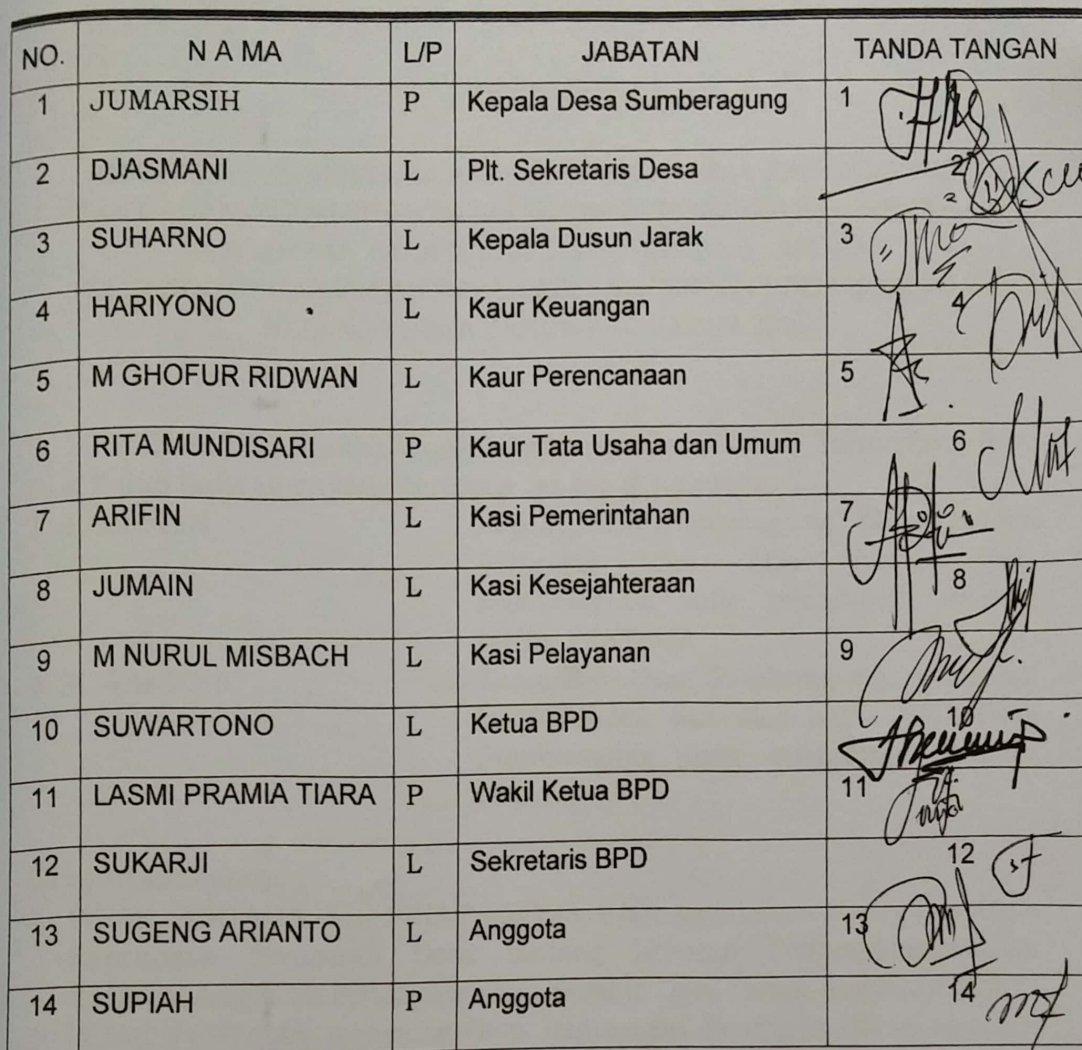 NO. N A M A L/P JABATAN TANDA TANGAN
1 JUMARSIH P Kepala Desa Sumberagung 1
2 DJASMANI L Plt. Sekretaris Desa 2
3 SUHARNO L Kepala Dusun Jarak 3
4 HARIYONO L Kaur Keuangan 4
5 M GHOFUR RIDWAN L Kaur Perencanaan 5
6 RITA MUNDISARI P Kaur Tata Usaha dan Umum 6
7 ARIFIN L Kasi Pemerintahan 7
8 JUMAIN L Kasi Kesejahteraan 8
9 M NURUL MISBACH L Kasi Pelayanan 9
10 SUWARTONO L Ketua BPD 10
11 LASMI PRAMIA TIARA P Wakil Ketua BPD 11
12 SUKARJI L Sekretaris BPD 12
13 SUGENG ARIANTO L Anggota 13
14 SUPIAH P Anggota 14